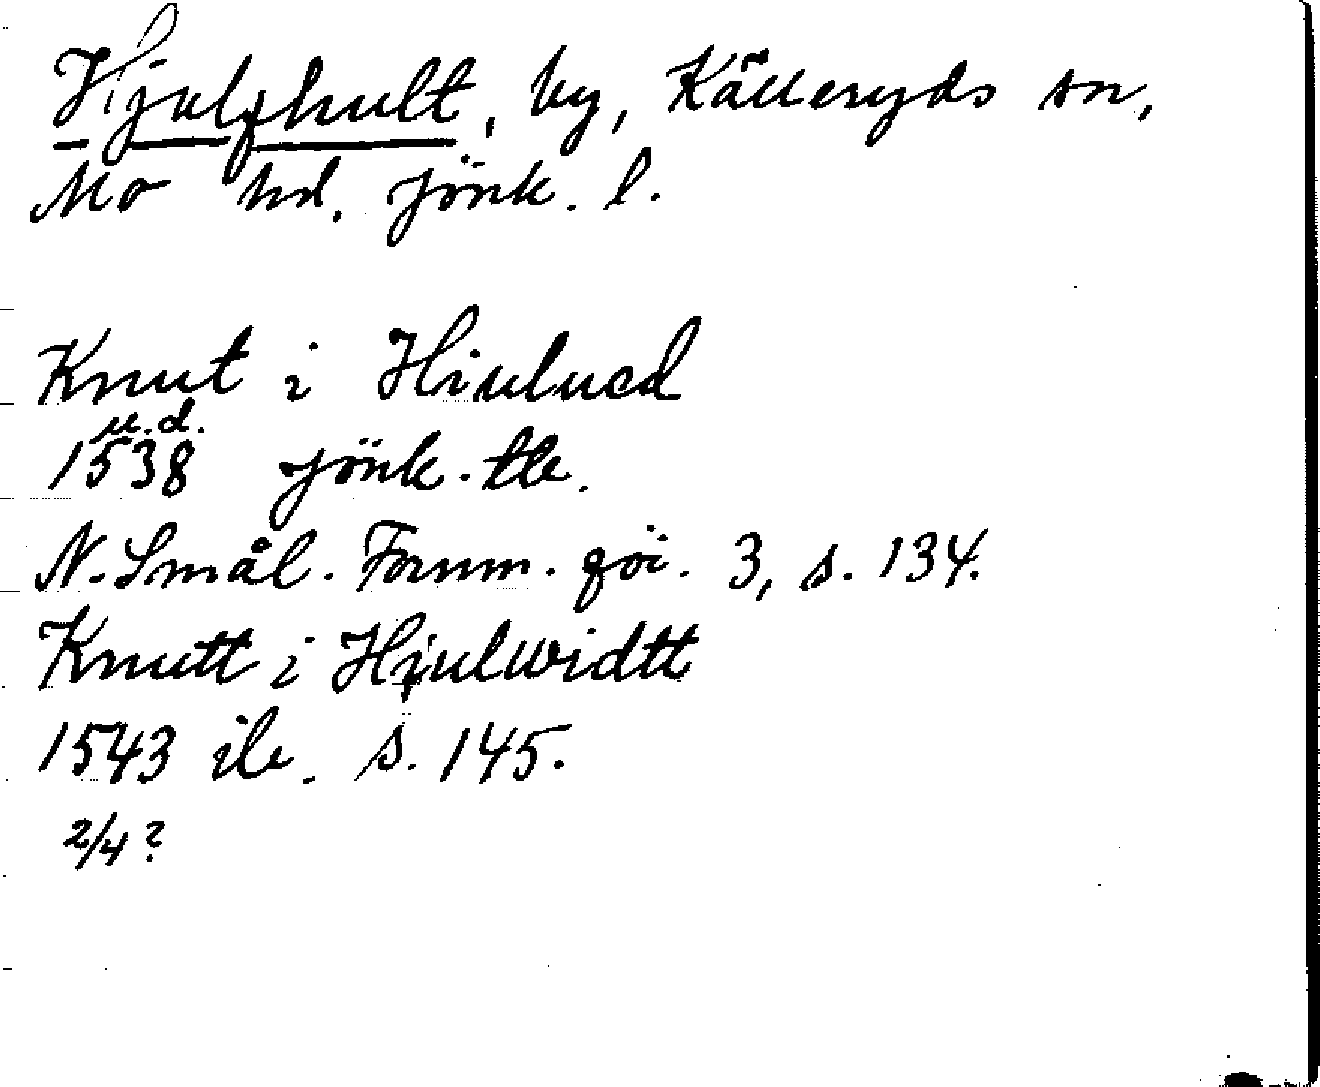 Hjulfhult, by, Källeryds sn,
Mo hd. Jönk. l.
Knut i Hiulued
u.d.
1538 Jönk. tb.
N. Smål. Fornm. föi. 3, s. 134.
Knutt i Hiulwidtt
1543 ib. s. 145.
2/4 ?